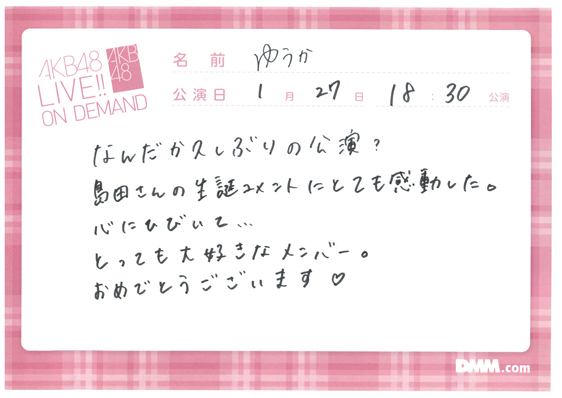 AKB48
LIVE!!
ON DEMAND
AKB
48
名前 ゆうか
公演日 1月27日 18:30公演
なんだか久しぶりの公演?
島田さんの生誕コメントにとても感動した。
心にひびいて…
とっても大好きなメンバー。
おめでとうございます♡
DMM.com